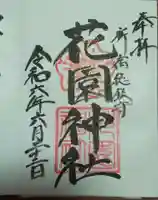 奉拝
新宿総鎮守
花園神社
令和六年六月二十二日